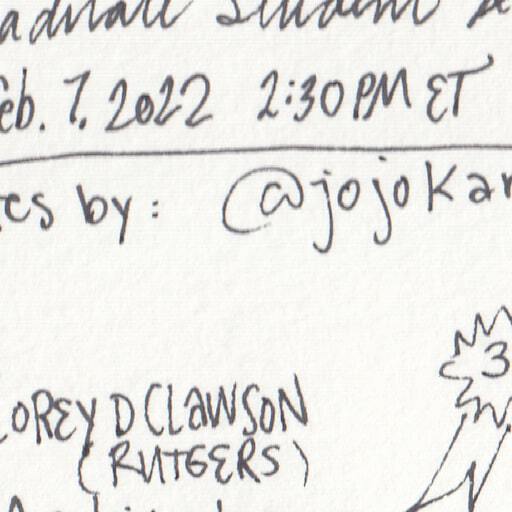 Student
Feb. 7, 2022 2:30PM ET
by: @jojoKar
3
COREY D CLAWSON
(RUTGERS)